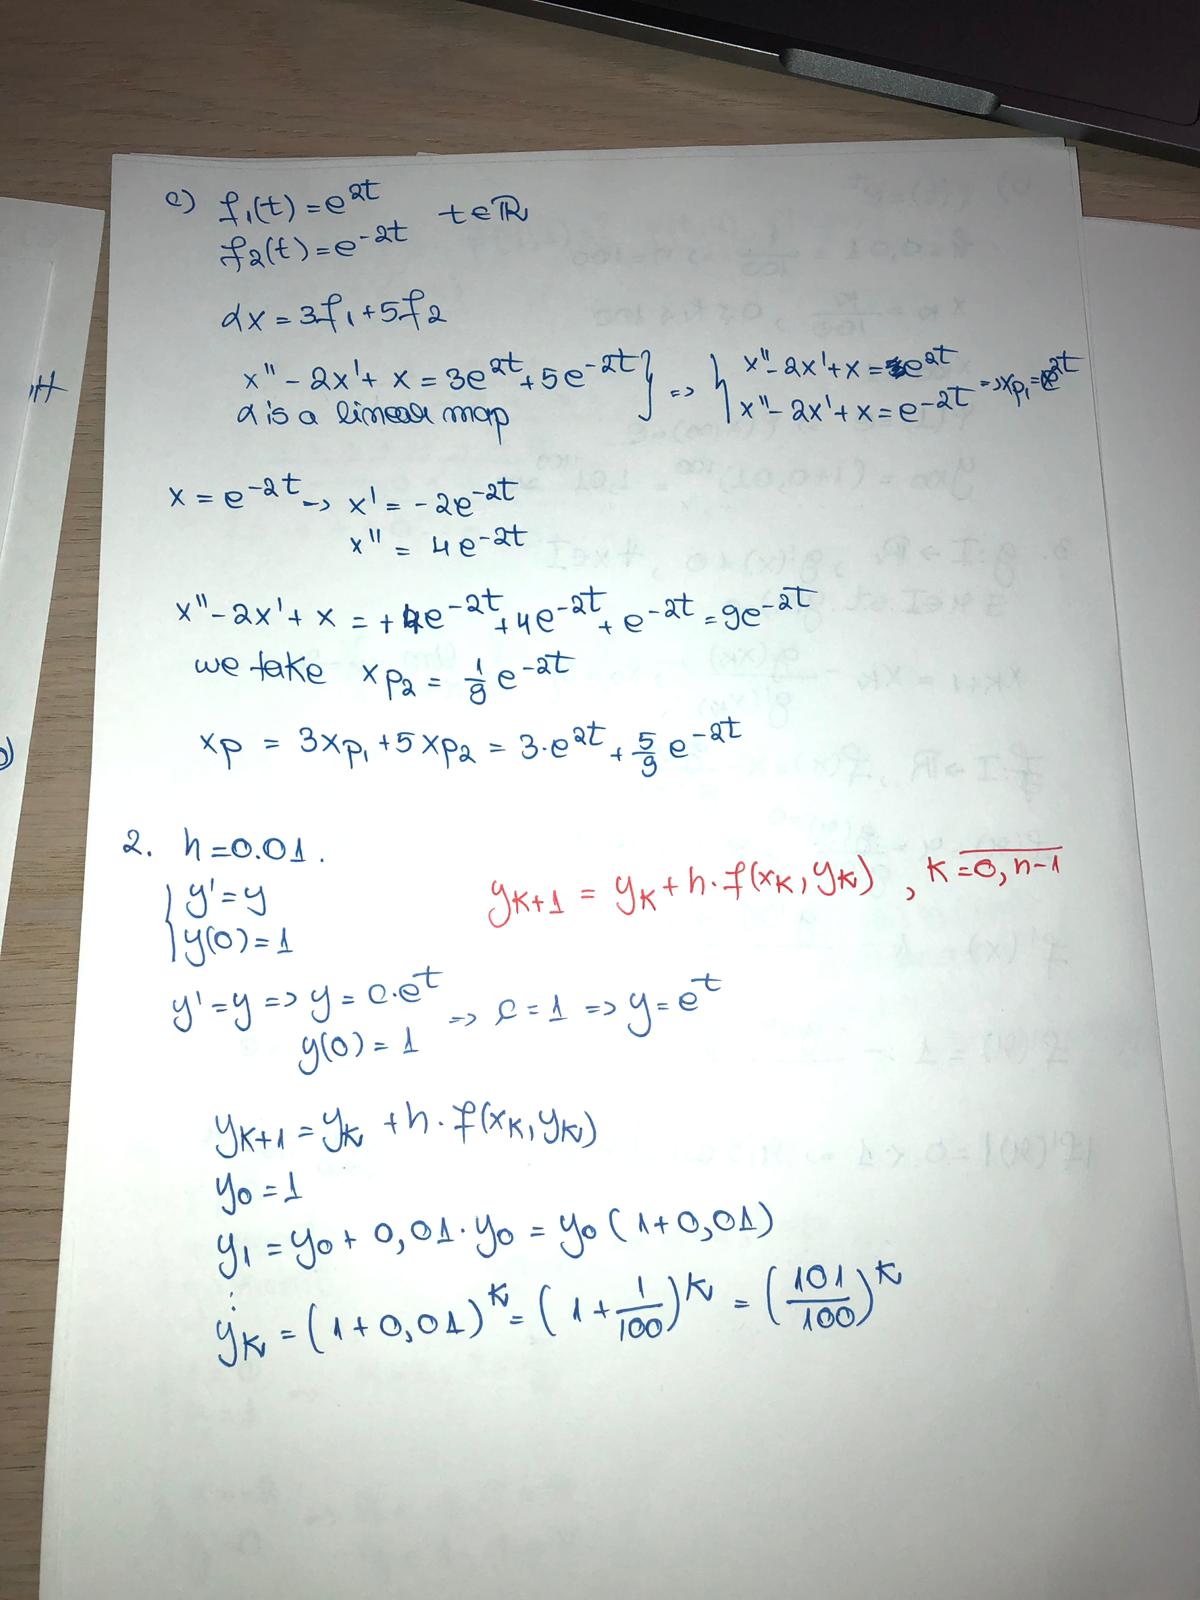 c) f₁(t) = e^2t
f₂(t) = e^-2t t∈ℝ
αx = 3f₁ + 5f₂
x'' - 2x' + x = 3e^2t + 5e^-2t } => { x'' - 2x' + x = e^2t
α is a linear map x'' - 2x' + x = e^-2t => xp₁ = e^2t
x = e^-2t -> x' = -2e^-2t
x'' = 4e^-2t
x'' - 2x' + x = +4e^-2t + 4e^-2t + e^-2t = 9e^-2t
we take xp₂ = 1/9 e^-2t
xp = 3xp₁ + 5xp₂ = 3·e^2t + 5/9 e^-2t
2. h = 0.01.
{ y' = y
y(0) = 1
y_k+1 = y_k + h·f(x_k, y_k) , k = 0, n-1
y' = y => y = c·e^t
y(0) = 1 => c = 1 => y = e^t
y_k+1 = y_k + h·f(x_k, y_k)
y₀ = 1
y₁ = y₀ + 0,01·y₀ = y₀(1 + 0,01)
⋮
y_k = (1 + 0,01)^k = (1 + 1/100)^k = (101/100)^k